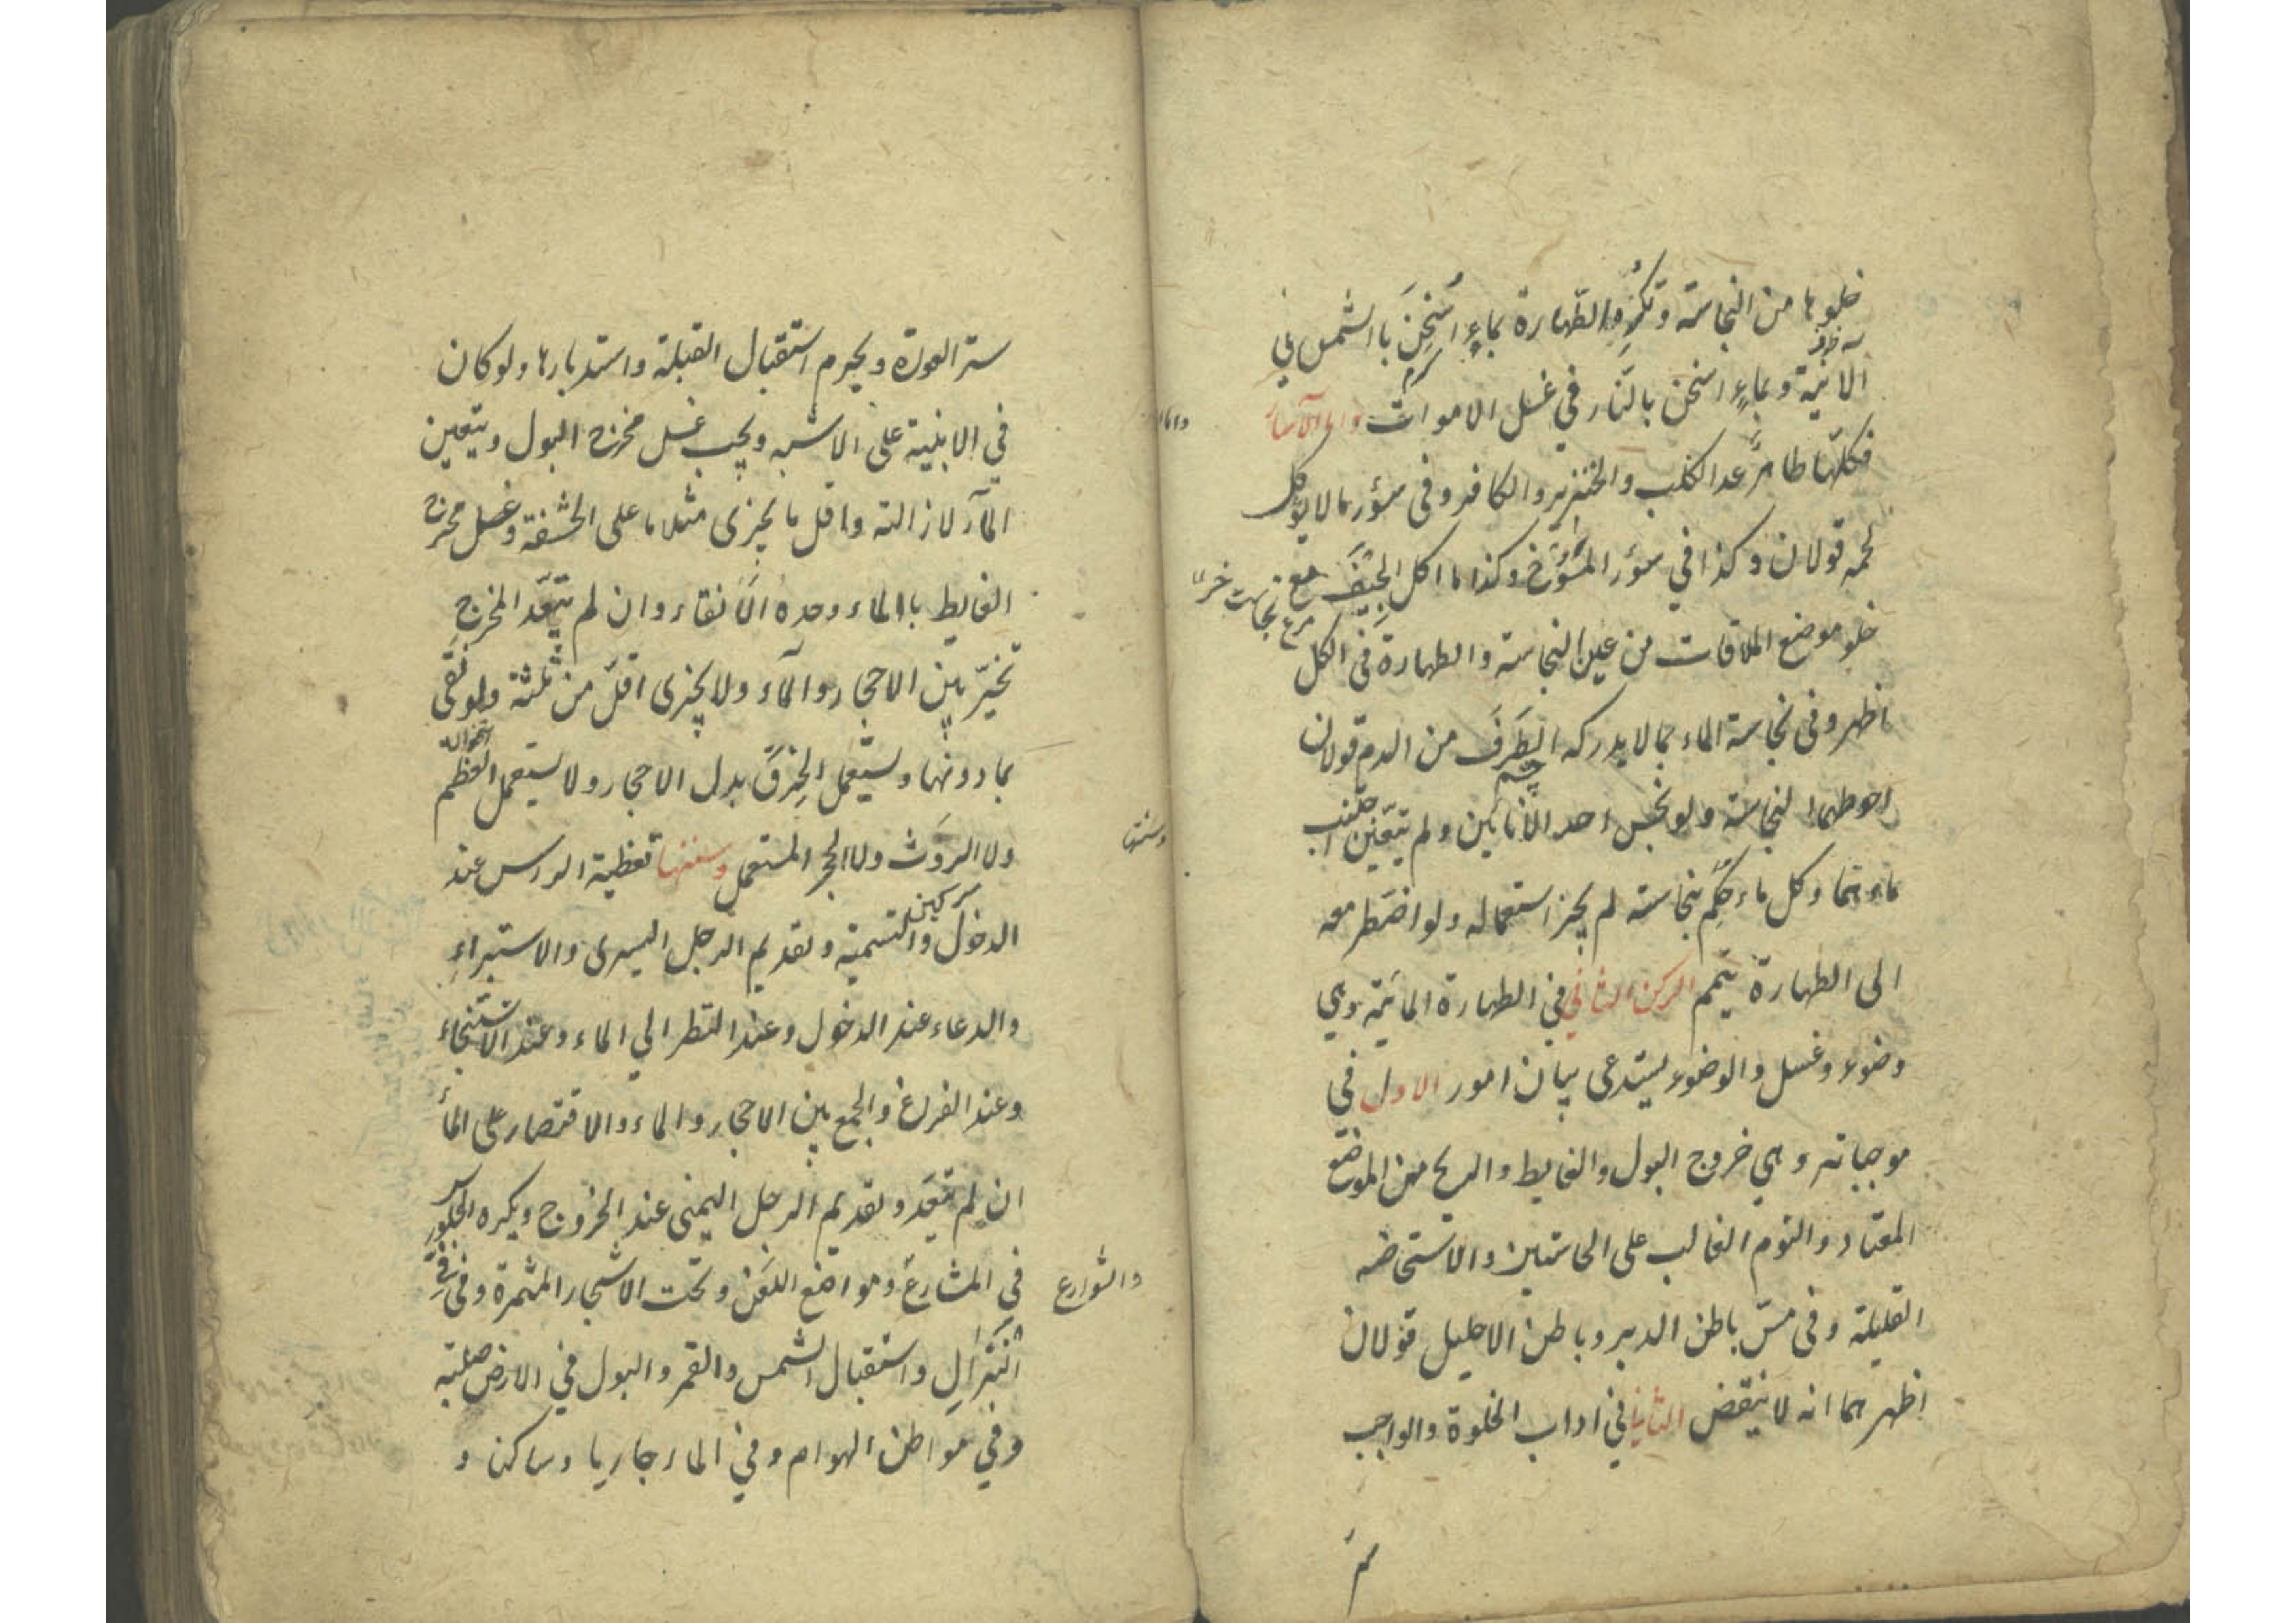 خلوها من النجاسة وتكره الطهارة بماءٍ اُسْخِنَ باالشمس في
الآنية وبماءٍ اسخن بالنّار في غسل الاموات واما الآسار
فكلّها طاهرٌ عدا الكلب والخنزير والكافر وفى سؤر مالا يوكل
لحمه قولان وكذا في سؤر المسُوخ وكذا ما اكل الجِيَف مع
خلو موضع الملاقات من عين النجاسة والطهارة فى الكل
اظهر وفى نجاسة الماء بمالا يدركه الطَرَف من الدم قولان
احوطهما النجاسة ولو نجس احد الانائين ولم يتعيّن اجتنب
ماءهما وكل ماء حُكِم بنجاسته لم يجز استعماله ولو اضطر معه
الى الطهارة تيمم الركن الثاني في الطهارة المائية وهي
وضوء وغسل والوضوء يستدعى بيان امور الاول في
موجباته وهي خروج البول والغايط والريح من الموضع
المعتاد والنوم الغالب على الحاستين والاستحاضه
القليلة وفى مسّ باطن الدبر وباطن الاحليل قولان
اظهرهما انه لا ينقض الثاني في اداب الخلوة والواجب
ستر
واما
ستر العورة ويحرم استقبال القبلة واستدبارها ولو كان
في الابنية على الاشبه ويجب غسل مخرج البول ويتعين
المآء لازالته واقل ما يجزى مثلا ما على الحشفة وغسل مخرج
الغايط باالماء وحده الانقاء وان لم يتعدّ المخرج
تخيّر بين الاحجار والمآء ولا يجزى اقلّ من ثلثة ولو نقى
بمادونها ويستعمل الخِرَق بدل الاحجار ولا يستعمل العظم
ولا الروَث ولا الحجر المستعمل وسننها تغطية الراس عند
الدخول والتسمية وتقديم الرجل اليسرى والاستبراءِ
والدعاء عند الدخول وعند النظر الي الماء وعند الاستنجاء
وعند الفراغ والجمع بين الاحجار والماء والاقتصار على المأ
ان لم يتعدّ وتقديم الرجل اليمنى عند الخروج ويكره الجلوس
في المشارع ومواضع اللعَن وتحت الاشجار المثمرة وفى فيّ
النُّزّال واستقبال الشمس والقمر والبول في الارض صلبة
وفي مواطن الهوام وفي الماء جاريا وساكنا و
وسننها
والشوارع